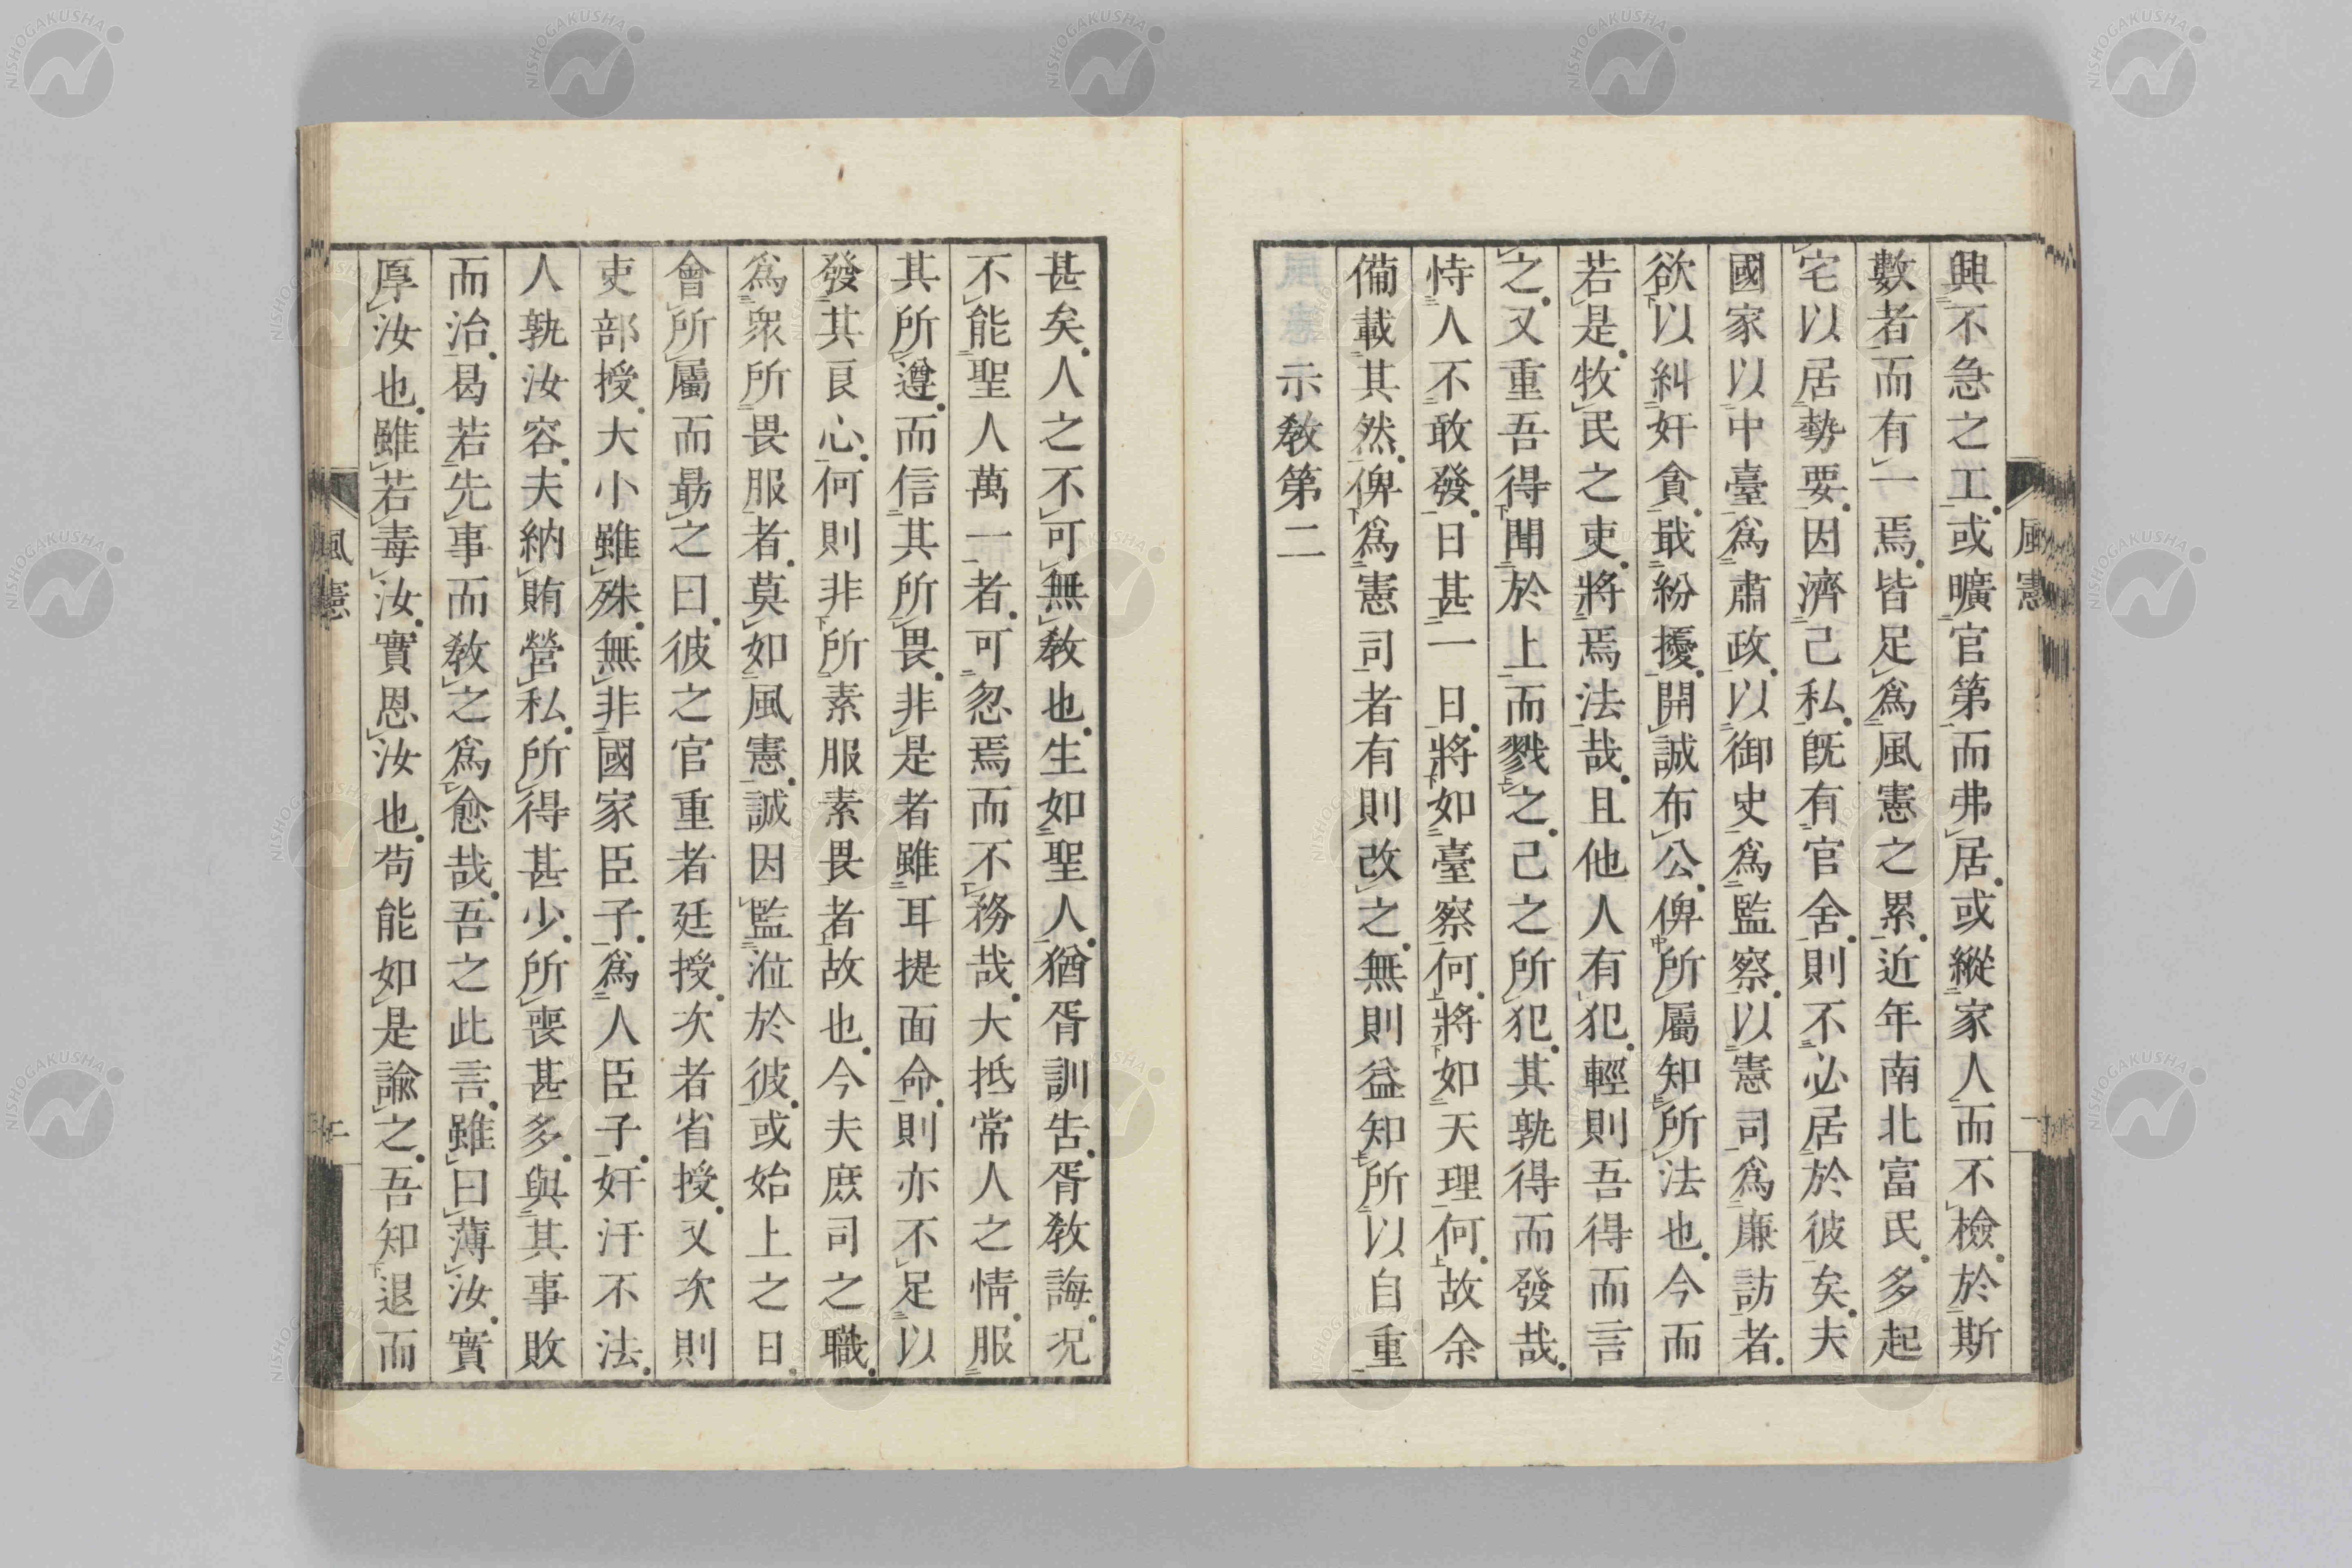 興不急之工或曠官第而弗居或縱家人而不檢於斯
數者而有一焉皆足爲風憲之累近年南北富民多起
宅以居勢要因濟己私旣有官舍則不必居於彼矣夫
國家以中臺爲肅政以御史爲監察以憲司爲廉訪者
欲以糾奸貪戢紛擾開誠布公俾所屬知所法也今而
若是牧民之吏將焉法哉且他人有犯輕則吾得而言
之又重吾得聞於上而戮之己之所犯其孰得而發哉
恃人不敢發日甚一日將如臺察何將如天理何故余
備載其然俾爲憲司者有則改之無則益知所以自重
示教第二
甚矣人之不可無教也生如聖人猶胥訓告胥教誨況
不能聖人萬一者可忽焉而不務哉大抵常人之情服
其所遵而信其所畏非是者雖耳提面命則亦不足以
發其良心何則非所素服素畏者故也今夫庶司之職
爲衆所畏服者莫如風憲誠因監涖於彼或始上之日
會所屬而最之曰彼之官重者廷授次者省授又次則
吏部授大小雖殊無非國家臣子爲人臣子奸汙不法
人孰汝容夫納賄營私所得甚少所喪甚多與其事敗
而治曷若先事而教之爲愈哉吾之此言雖曰薄汝實
厚汝也雖若毒汝實恩汝也苟能如是諭之吾知退而
風憲
風憲
二
NISHOGAKUSHA